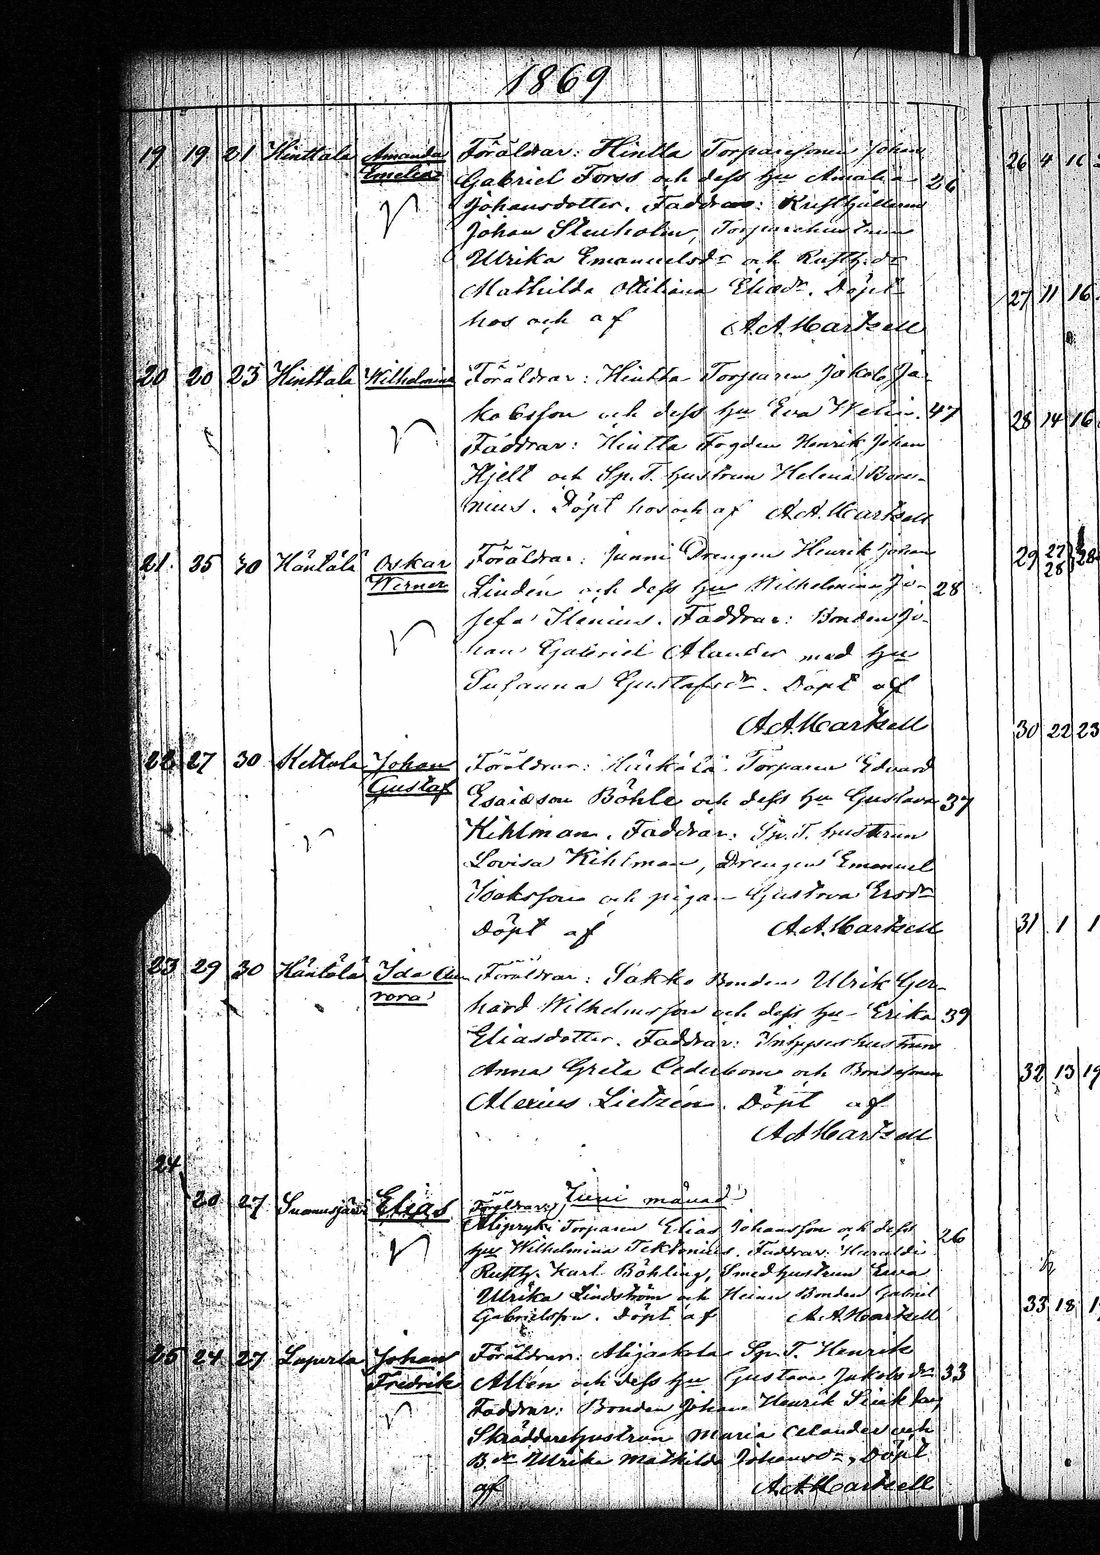 1869
19 19 21 Hinttala Amanda Föräldrar: Hintta Torparesonen Johan
Emelia Gabriel Forss och dess hu Amalia 26
Johansdotter. Faddrar:
Johan Stenholm, Torparehustrun
Ulrika Emanuelsdr och Rusth. dr
Mathilda Ottiliana Eliedr. Döpt
hos och af A. A. Hartzell
20 20 23 Hinttala Wilhelmina Föräldrar: Hintta Torparen Jakob Ja-
kobsson och dess hu Eva Welin. 47
Faddrar: Hintta Fogden Henrik Johan
Hjelt och Sp.T. hustrun Helena Bore-
nius. Döpt hos och af A. A. Hartzell
21. 35 30 Häntälä Oskar Föräldrar: Junni Drengen Henrik Johan
Werner Lindén och dess hu Wilhelmina Jo- 28
sefa Ilenius. Faddrar: Bonden Jo-
han Gabriel Alander med hu
Susanna Gustafsdr. Döpt af
A. A. Hartzell
22 27 30 Kettala Johan Föräldrar: Torparen Edvard
Gustaf Esaiasson Böhle och dess hu Gustava 37
Kihlman. Faddrar: Sp. T. hustrun
Lovisa Kihlman, Drengen Emanuel
Isaksson och pigan Gustava Ersdr
Döpt af A. A. Hartzell
23 29 30 Häntälä Ida Au- Föräldrar: Sakko Bonden Ulrik Ger-
rora hard Wilhelmsson och dess hu Erika 39
Eliasdotter. Faddrar: Inhyseshustrun
Anna Greta Cederbom och Bondesonen
Alexius Lietzén. Döpt af
A A Hartzell
24
Juni månad
20 27 Suomusjärvi Elias Föräldrar:
Torparen Elias Johansson och dess 26
hu Wilhelmina Tektonius. Faddrar:
Rusth. Karl Böhling, Smedhustrun Ewa
Ulrika Lindström och Bonden Gabriel
Gabrielsson. Döpt af A. A. Hartzell
25 24 27 Laperla Johan Föräldrar: Alijaakola Sp. T. Henrik
Fredrik Allén och dess hu Gustava Jakobsdr 33
Faddrar: Bonden Johan Henrik
Skräddarehustrun Maria Celander och
B. dr Ulrika Mathilda Johansdr, Döpt
af A A Hartzell
26 4
27 11 16
28 14 16
29 27 28
28
30 22 23
31 1 1
32 13 19
33 18